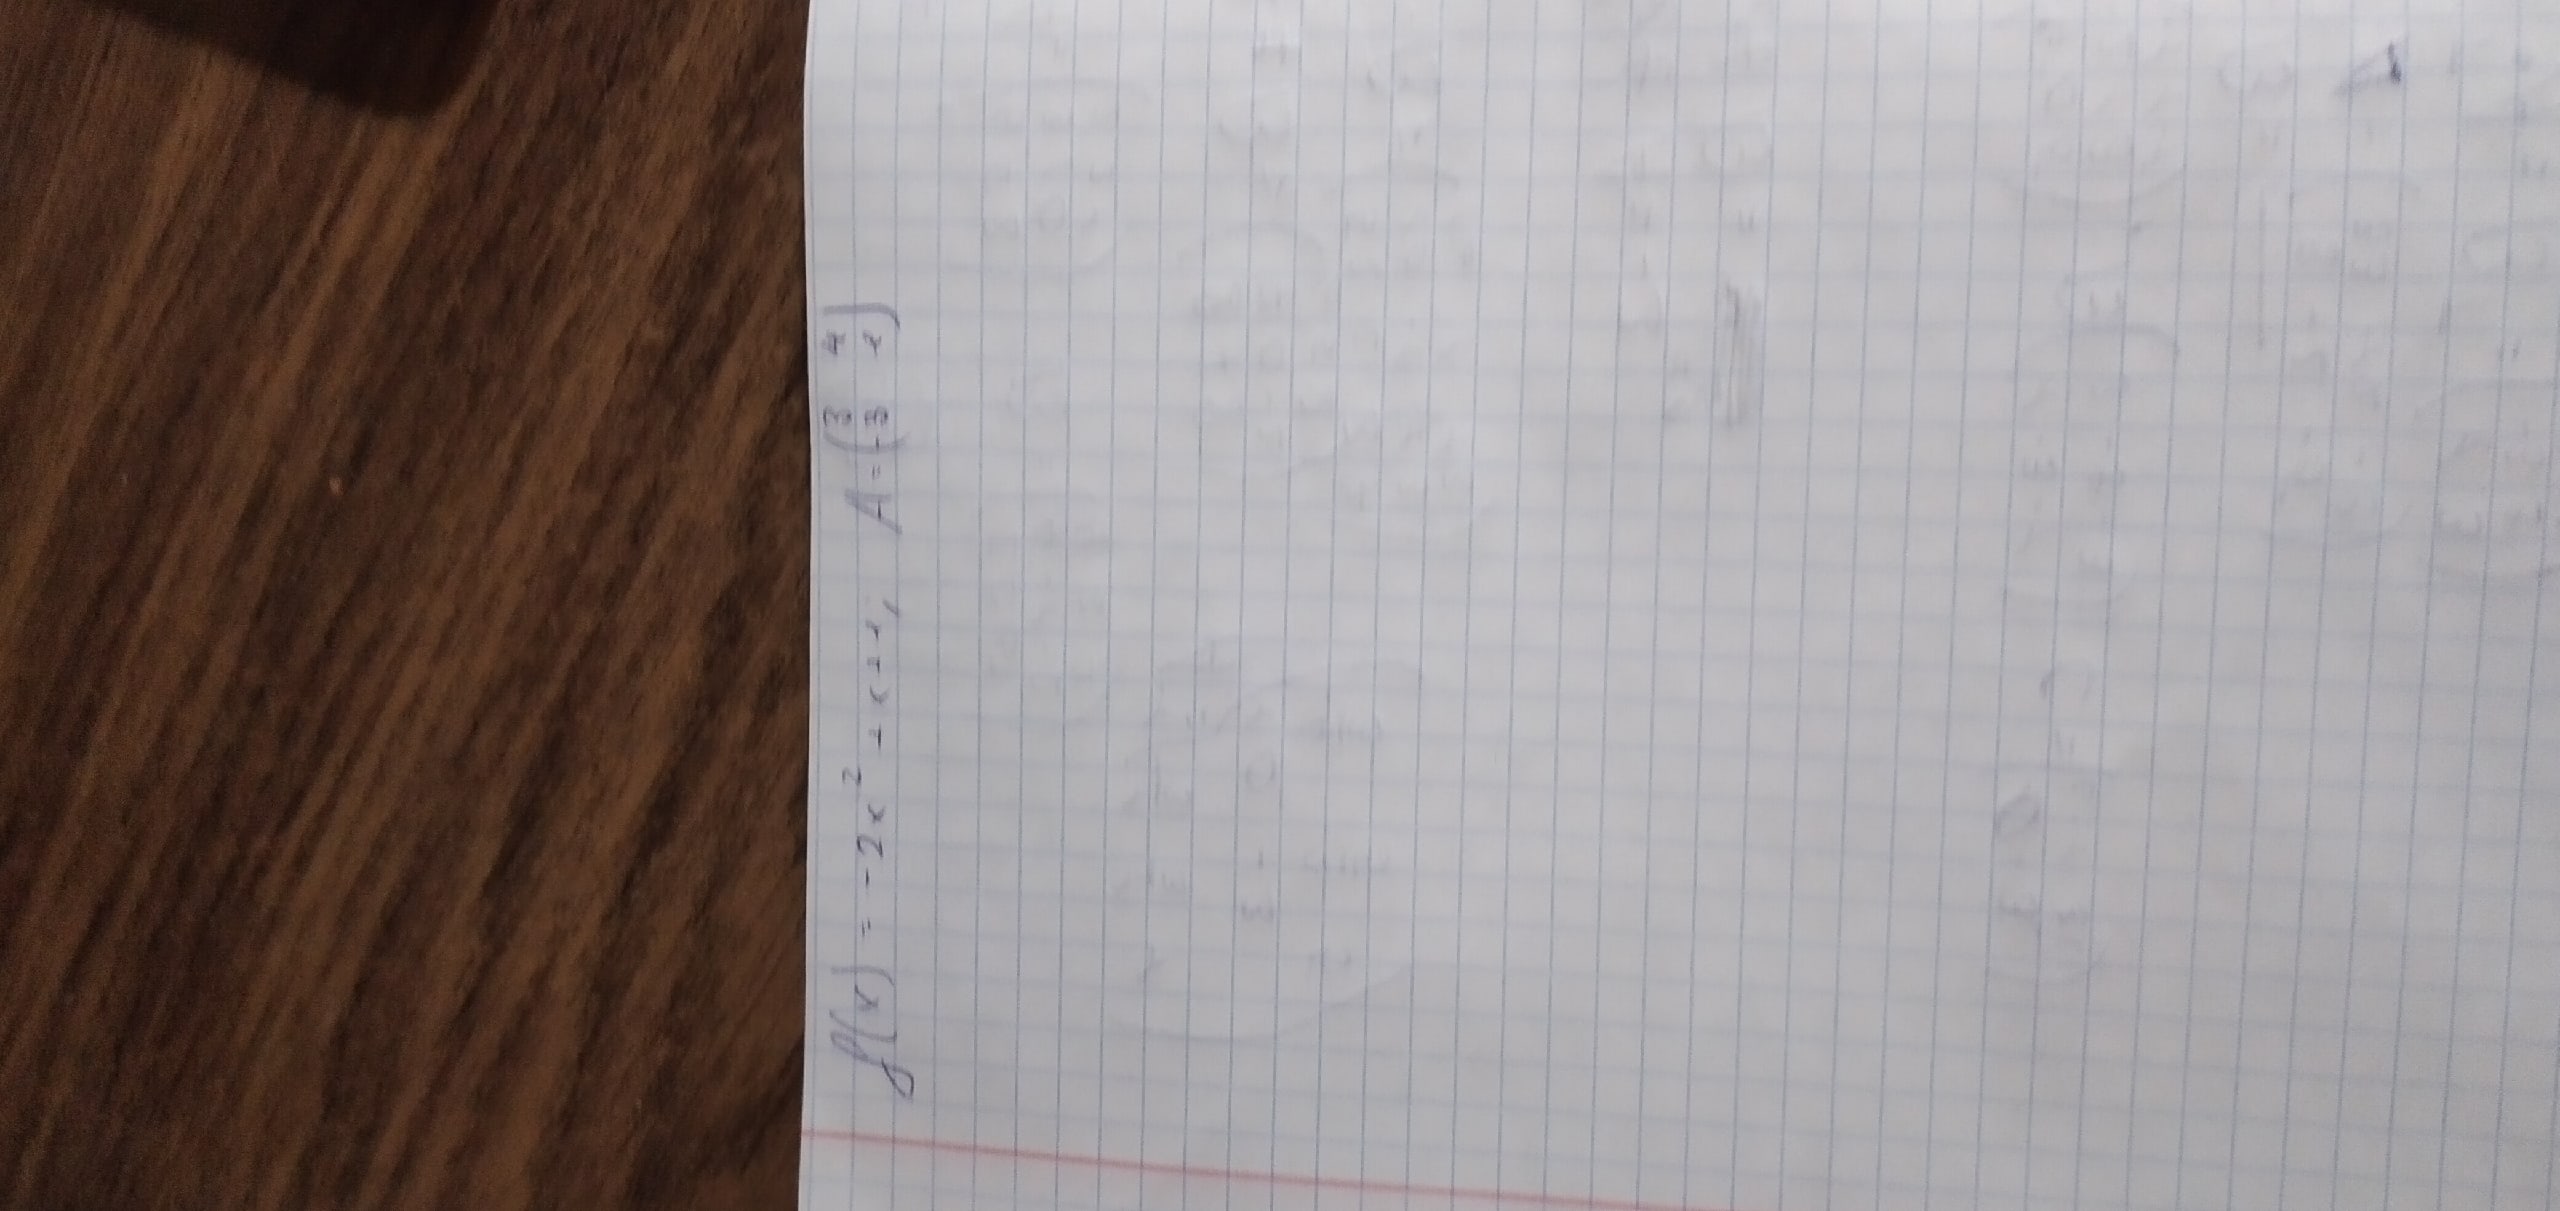 f(x) = -2x² + x + 1, A = (3 4
-3 1)